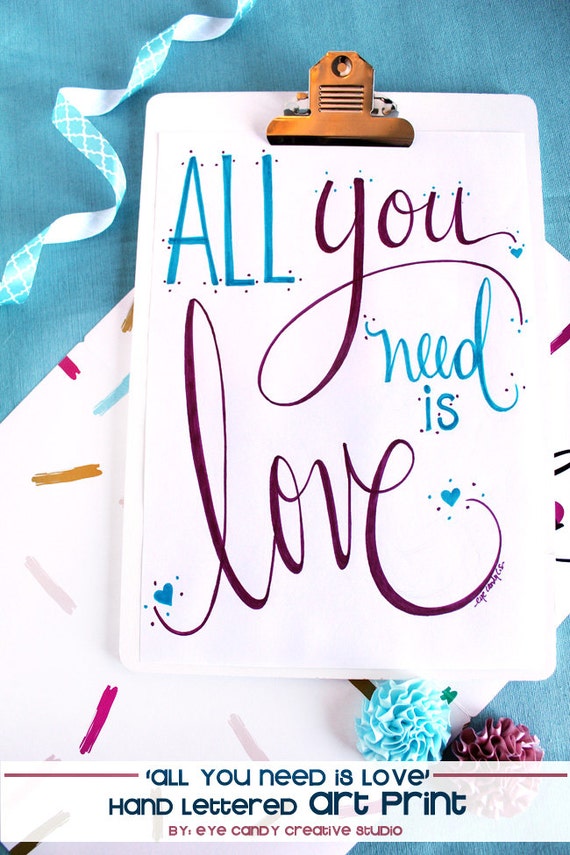 ALL you
need
is
love
eye candy c.s.
'ALL YOU NEED IS LOVE'
HAND LETTERED ART PRINT
BY: EYE CANDY CREATIVE STUDIO